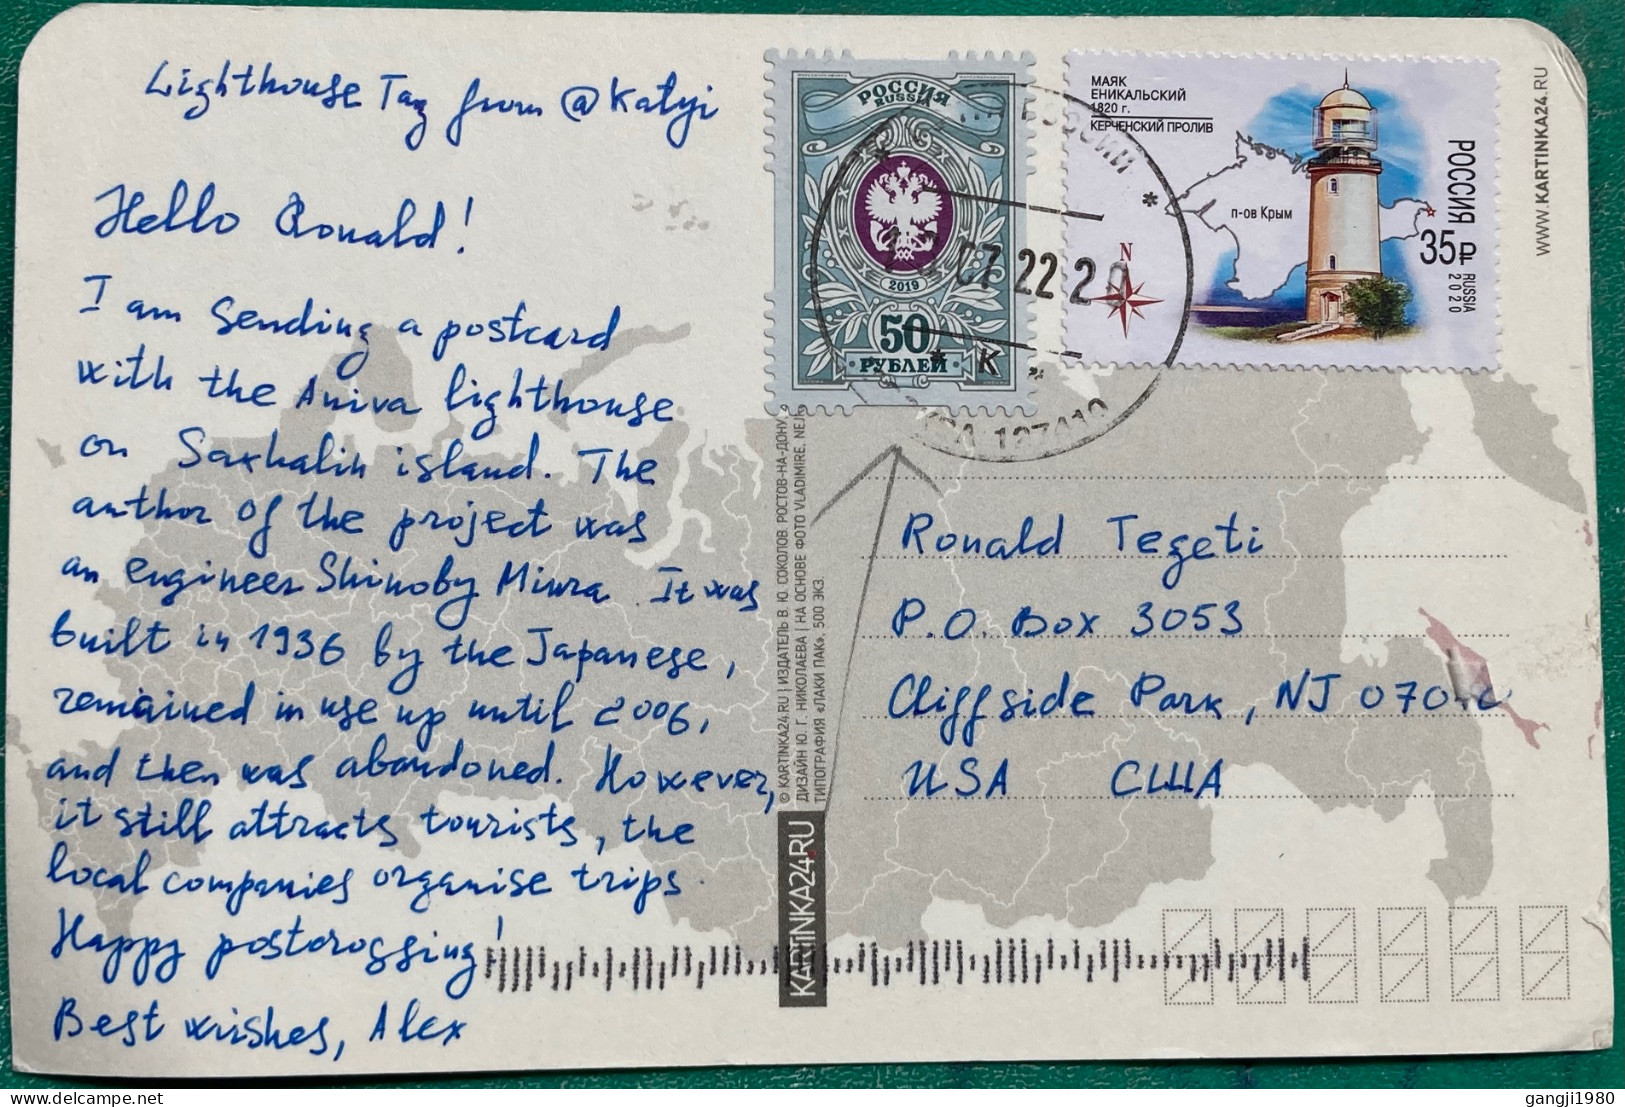 Lighthouse Tag from @Katyi
Hello Ronald!
I am sending a postcard
with the Aniva lighthouse
on Saxhalin island. The
author of the project was
an engineer Shinoby Miura. It was
built in 1936 by the Japanese,
remained in use up until 2006,
and then was abandoned. However,
it still attracts tourists, the
local companies organise trips.
Happy postcrossing!
Best wishes, Alex
РОССИЯ
RUSSIA
2019
50
РУБЛЕЙ
МАЯК
ЕНИКАЛЬСКИЙ
1820 г.
КЕРЧЕНСКИЙ ПРОЛИВ
п-ов Крым
N
РОССИЯ
35₽
RUSSIA
2020
07 22 20
К
WWW.KARTINKA24.RU
© KARTINKA24.RU | ИЗДАТЕЛЬ В. Ю. СОКОЛОВ. РОСТОВ-НА-ДОНУ,
ДИЗАЙН Ю. Г. НИКОЛАЕВА | НА ОСНОВЕ ФОТО VLADIMIRE.
ТИПОГРАФИЯ «ЛАКИ ПАК». 500 ЭКЗ.
KARTINKA24.RU
Ronald Tegeti
P.O. Box 3053
Cliffside Park, NJ
USA США
gangji1980